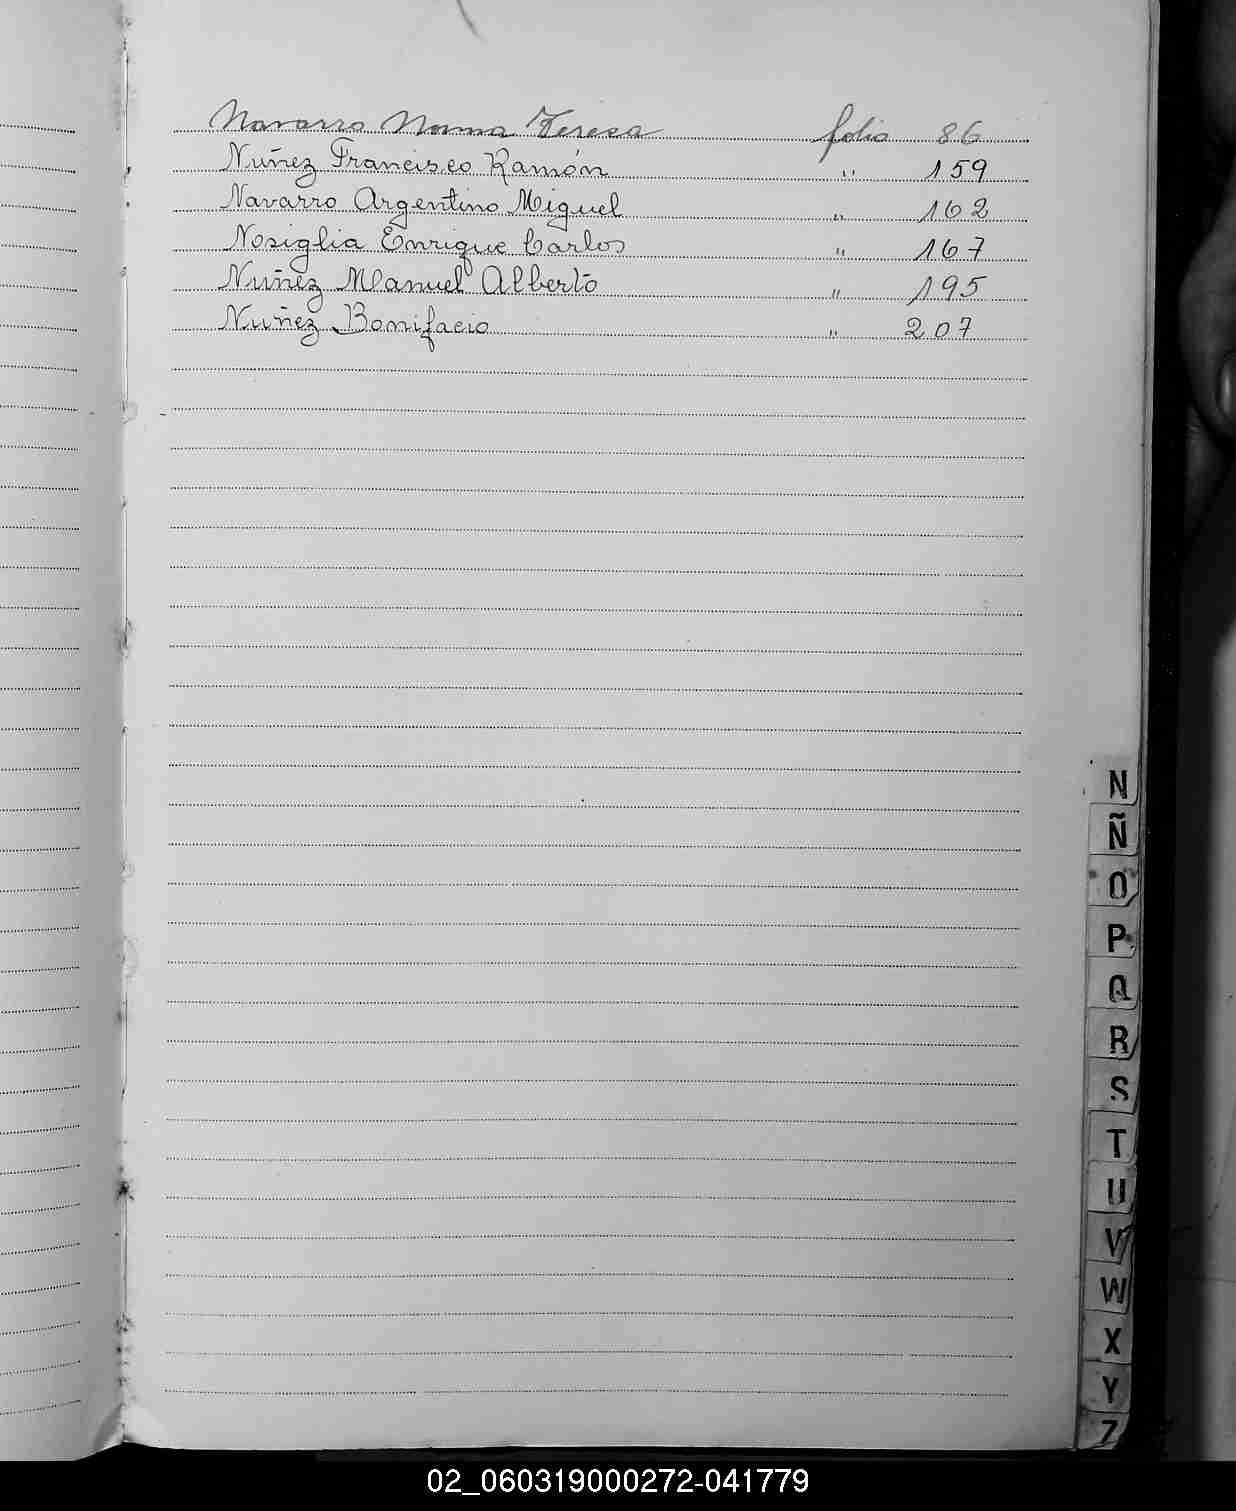 Navarro Norma Teresa folio 86
Nuñez Francisco Ramón " 159
Navarro Argentino Miguel " 162
Nosiglia Enrique Carlos " 167
Nuñez Manuel Alberto " 195
Nuñez Bonifacio " 207
N
Ñ
O
P
Q
R
S
T
U
V
W
X
Y
Z
02_060319000272-041779